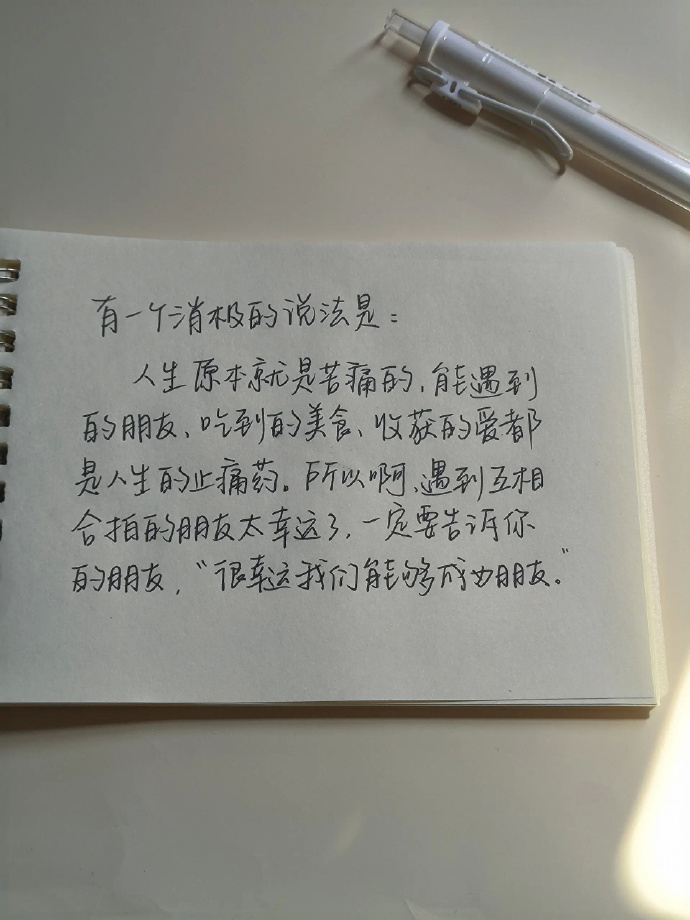 有一个消极的说法是：
人生原本就是苦痛的，能遇到
的朋友、吃到的美食、收获的爱都
是人生的止痛药。所以啊，遇到互相
合拍的朋友太幸运了，一定要告诉你
的朋友，“很幸运我们能够成为朋友。”